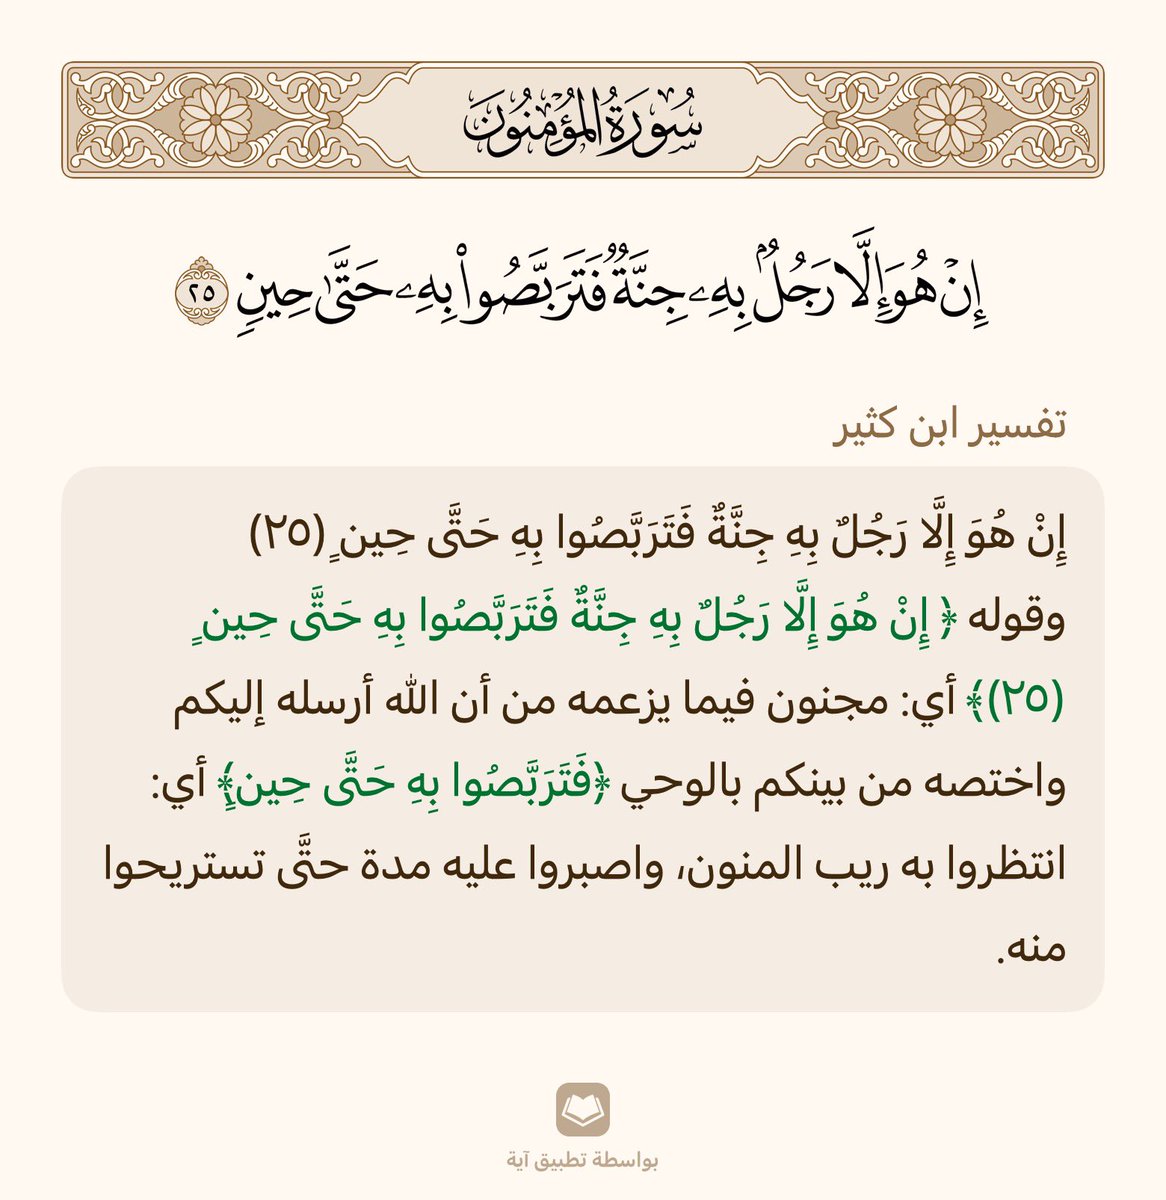 سُورَةُ المُؤۡمِنُونَ
إِنۡ هُوَ إِلَّا رَجُلُۢ بِهِۦ جِنَّةٞ فَتَرَبَّصُواْ بِهِۦ حَتَّىٰ حِينٖ ٢٥
تفسير ابن كثير
إِنْ هُوَ إِلَّا رَجُلٌ بِهِ جِنَّةٌ فَتَرَبَّصُوا بِهِ حَتَّى حِينٍ (٢٥)
وقوله ﴿ إِنْ هُوَ إِلَّا رَجُلٌ بِهِ جِنَّةٌ فَتَرَبَّصُوا بِهِ حَتَّى حِينٍ
(٢٥)﴾ أي: مجنون فيما يزعمه من أن الله أرسله إليكم
واختصه من بينكم بالوحي ﴿فَتَرَبَّصُوا بِهِ حَتَّى حِينٍ﴾ أي:
انتظروا به ريب المنون، واصبروا عليه مدة حتَّى تستريحوا
منه.
بواسطة تطبيق آية